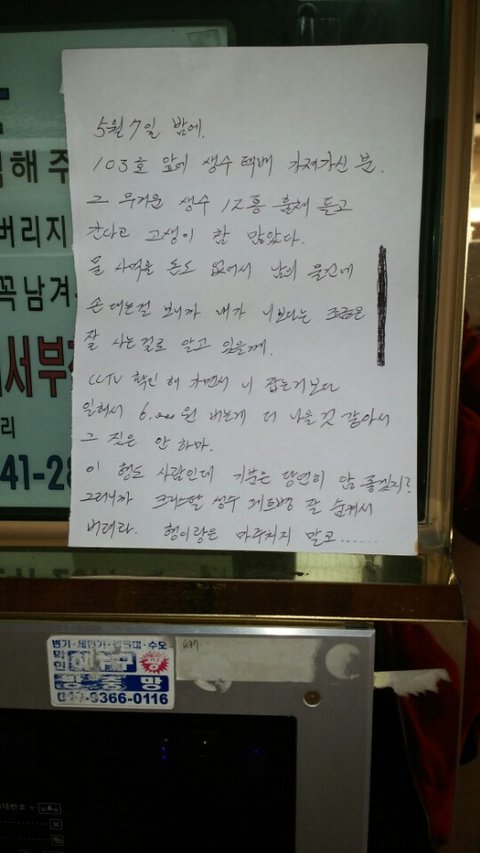 5월 7일 밤에.
103호 앞에 생수 택배 가져가신 분.
그 무거운 생수 12통 훔쳐 들고
간다고 고생이 참 많았다.
물 사먹을 돈도 없어서 남의 물건에
손 대는걸 보니까 내가 니보다는 조금은
잘 사는걸로 알고 있을께.
CCTV 확인 해 가면서 니 잡는거보다
일해서 6,000원 버는게 더 나을것 같아서
그 짓은 안 하마.
이 형도 사람인데 기분은 당연히 안 좋겠지?
그러니까 크리스탈 생수 페트병 잘 숨겨서
버려라. 형이랑은 마주치지 말고......
해 주
버리지
꼭 남겨
서부
리
41-28
변기·세면기·씽크대·수도
방충망
010-3366-0116